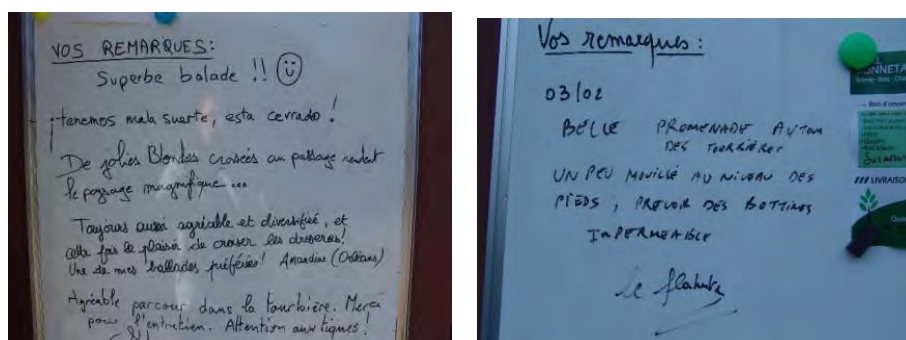 VOS REMARQUES:
Superbe balade !!
¡tenemos mala suerte, esta cerrado !
De jolies Blondes croisées au passage rendent
le paysage magnifique ...
Toujours aussi agréable et diversifiée, et
cette fois le plaisir de croiser les droseras!
Une de mes ballades préférées! Amandine (Orléans)
Agréable parcour dans la tourbière. Merci
pour l'entretien. Attention aux tiques !
Vos remarques :
03/02
BELLE PROMENADE AUTOUR
DES TOURBIÈRES
UN PEU MOUILLÉ AU NIVEAU DES
PIEDS, PREVOIR DES BOTTINES
IMPERMEABLE
le
LIVRAISON